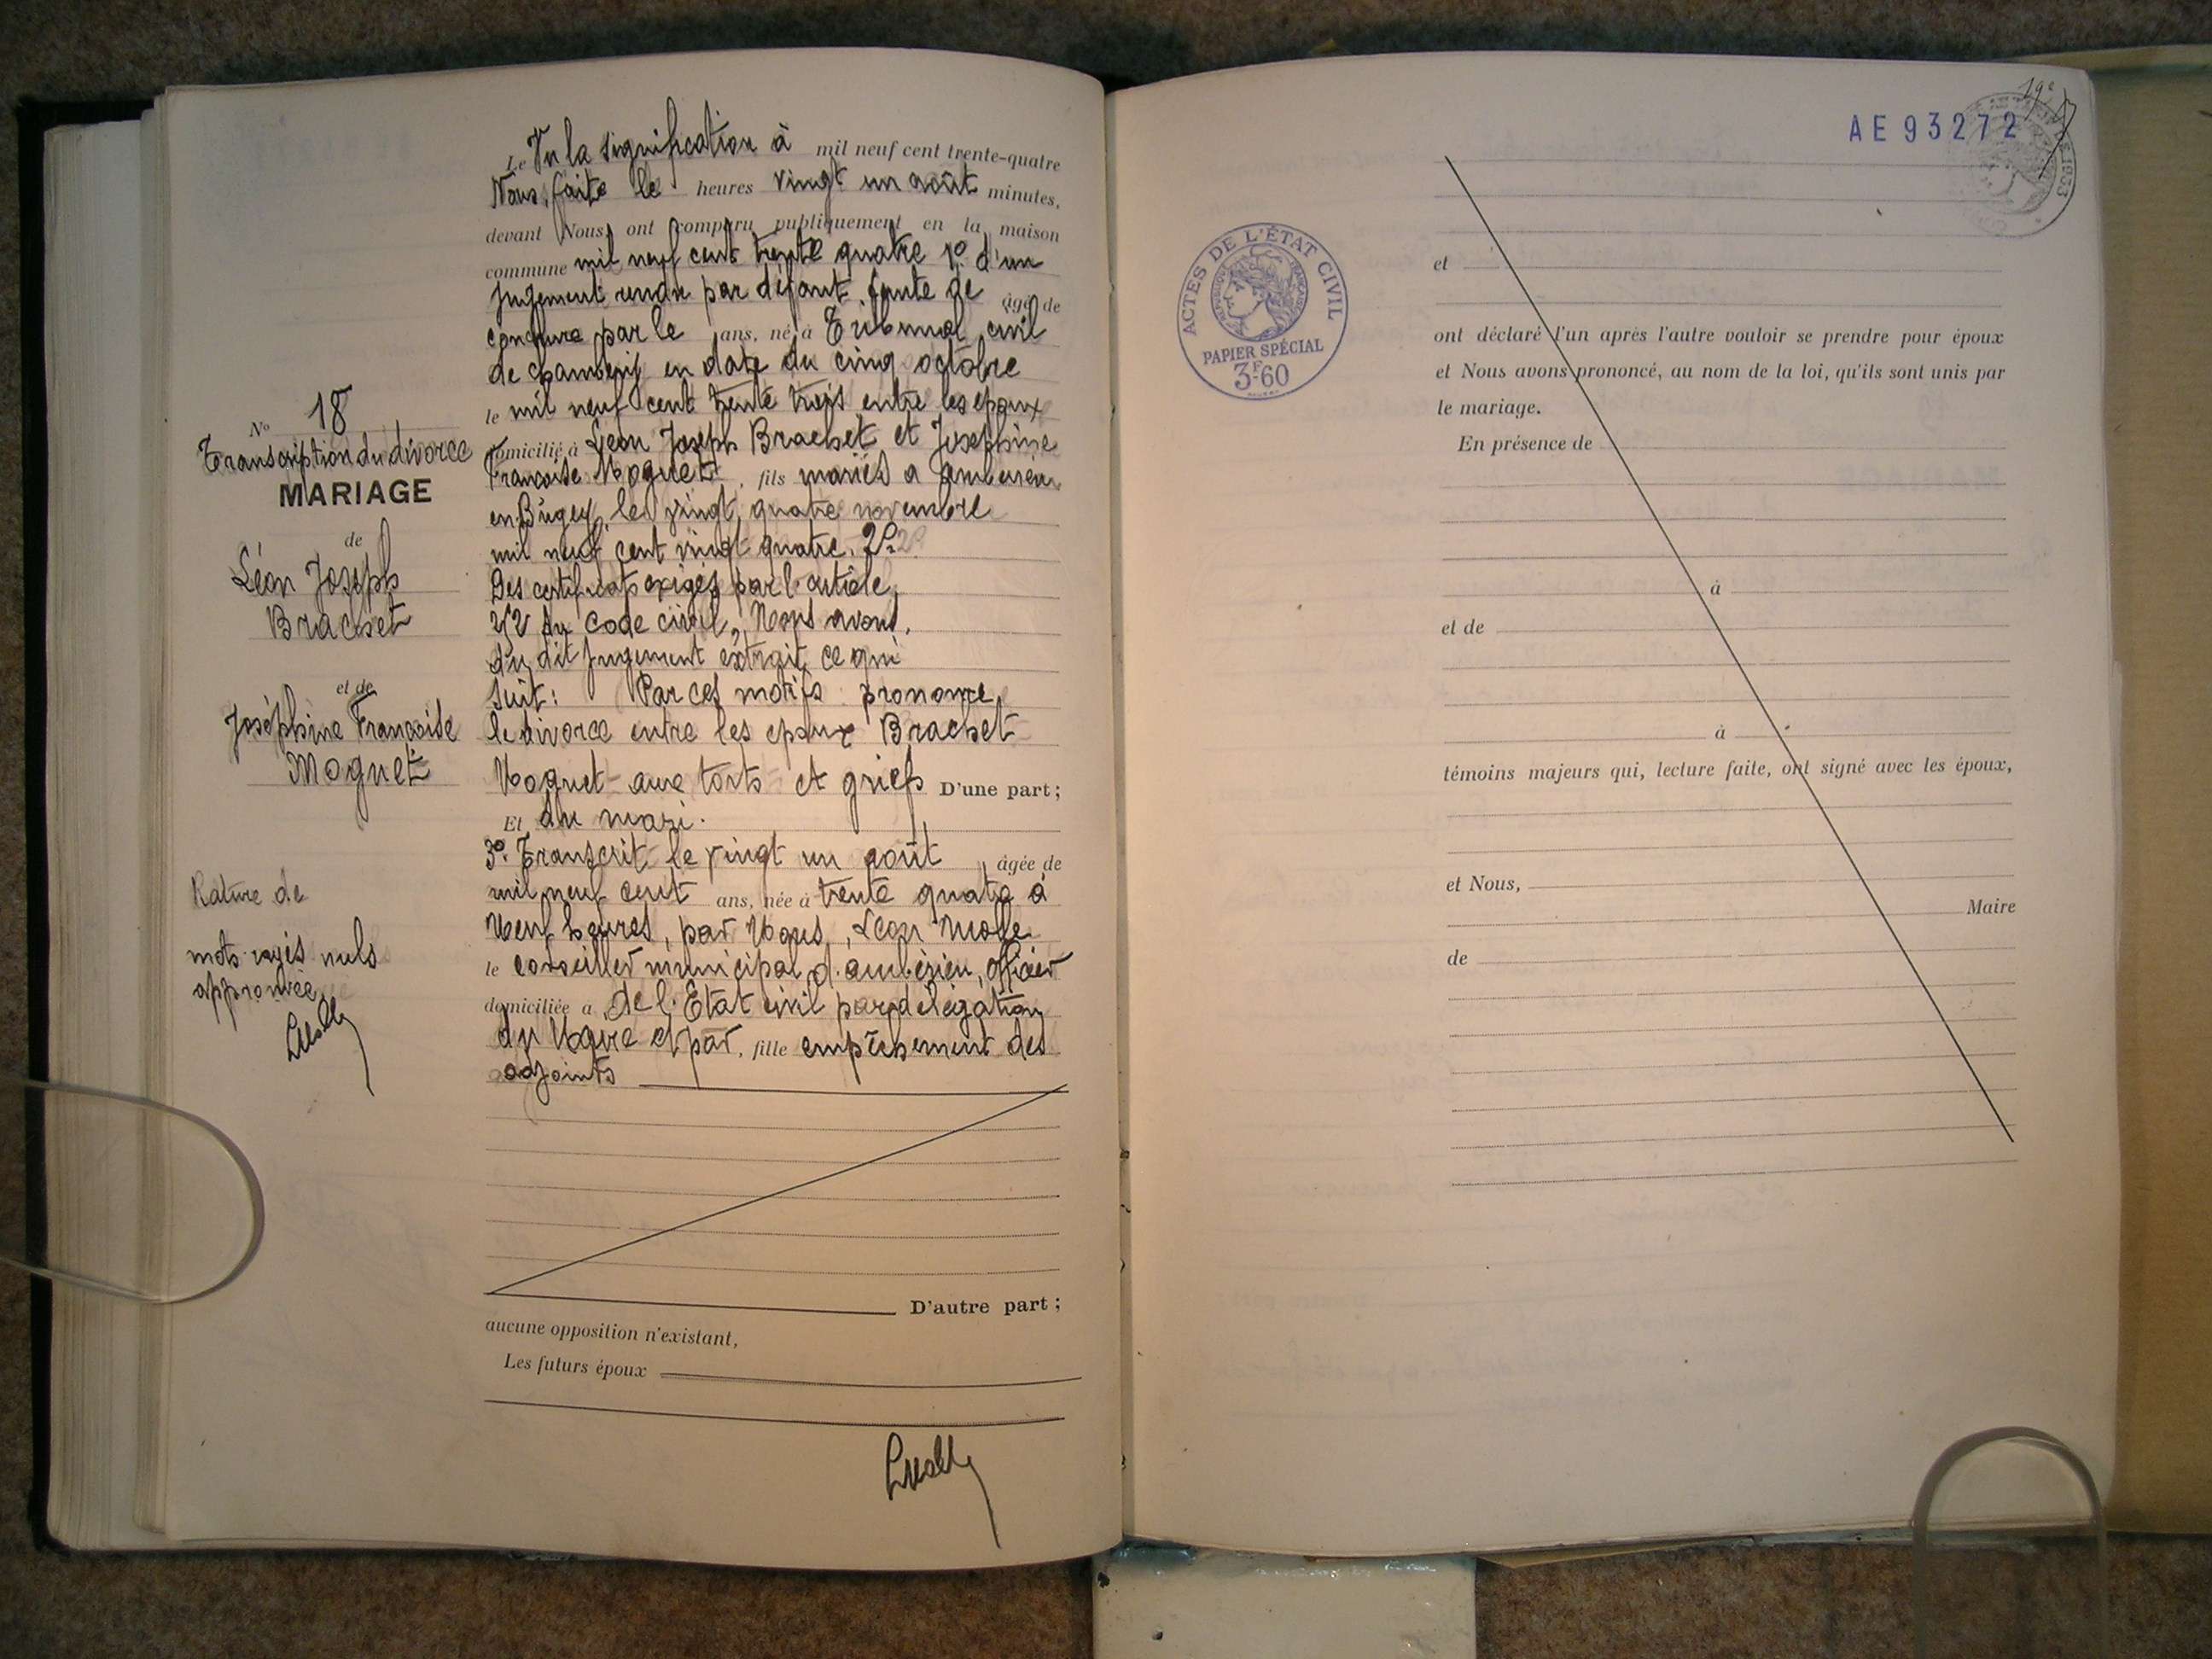 Le Vu la signification à mil neuf cent trente-quatre
Nous, faite le heures vingt un août minutes,
devant Nous, ont comparu publiquement en la maison
commune mil neuf cent trente quatre 1º d'un
jugement rendu par défaut, faute de âgé de
conclure par le ans, né à Tribunal civil
de en date du cinq octobre
le mil neuf cent trente trois entre les époux
domicilié à Léon Joseph Brachet et Joséphine
Françoise Moguet, fils mariés à Ambérieu
en Bugey, le vingt quatre novembre
mil neuf cent vingt quatre. 2º
Des certificats exigés par l'article
252 du Code civil, Nous avons,
du dit jugement extrait ce qui
suit: Par ces motifs prononce
le divorce entre les époux Brachet
Moguet aux torts et griefs D'une part;
Et du mari.
3º. Transcrit le vingt un août âgée de
mil neuf cent ans, née à trente quatre à
neuf heures, par Nous, Léon
le conseiller municipal d'ambérieu, officier
domiciliée à de l'Etat civil par délégation
du Maire et par, fille empêchement des
adjoints
D'autre part;
aucune opposition n'existant,
Les futurs époux
Nº 18
Transcription du divorce
MARIAGE
de
Léon Joseph
Brachet
et de
Joséphine Françoise
Moguet
Rature de
mots rayés nuls
approuvée
19e
AE93272
ACTES DE L'ÉTAT CIVIL
RÉPUBLIQUE FRANÇAISE
PAPIER SPÉCIAL
3F.60
et
ont déclaré l'un après l'autre vouloir se prendre pour époux
et Nous avons prononcé, au nom de la loi, qu'ils sont unis par
le mariage.
En présence de
à
et de
à
témoins majeurs qui, lecture faite, ont signé avec les époux,
et Nous,
Maire
de